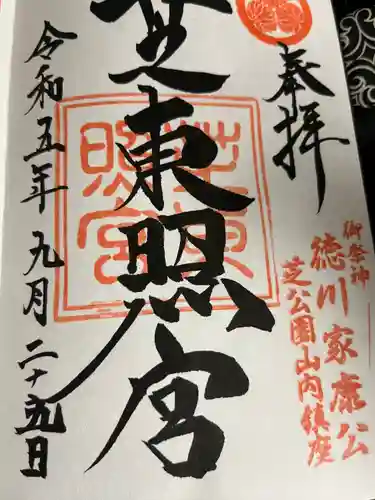 奉拝
御祭神
徳川家康公
芝公園山内鎮座
芝東照宮
芝東照宮
令和五年九月二十九日